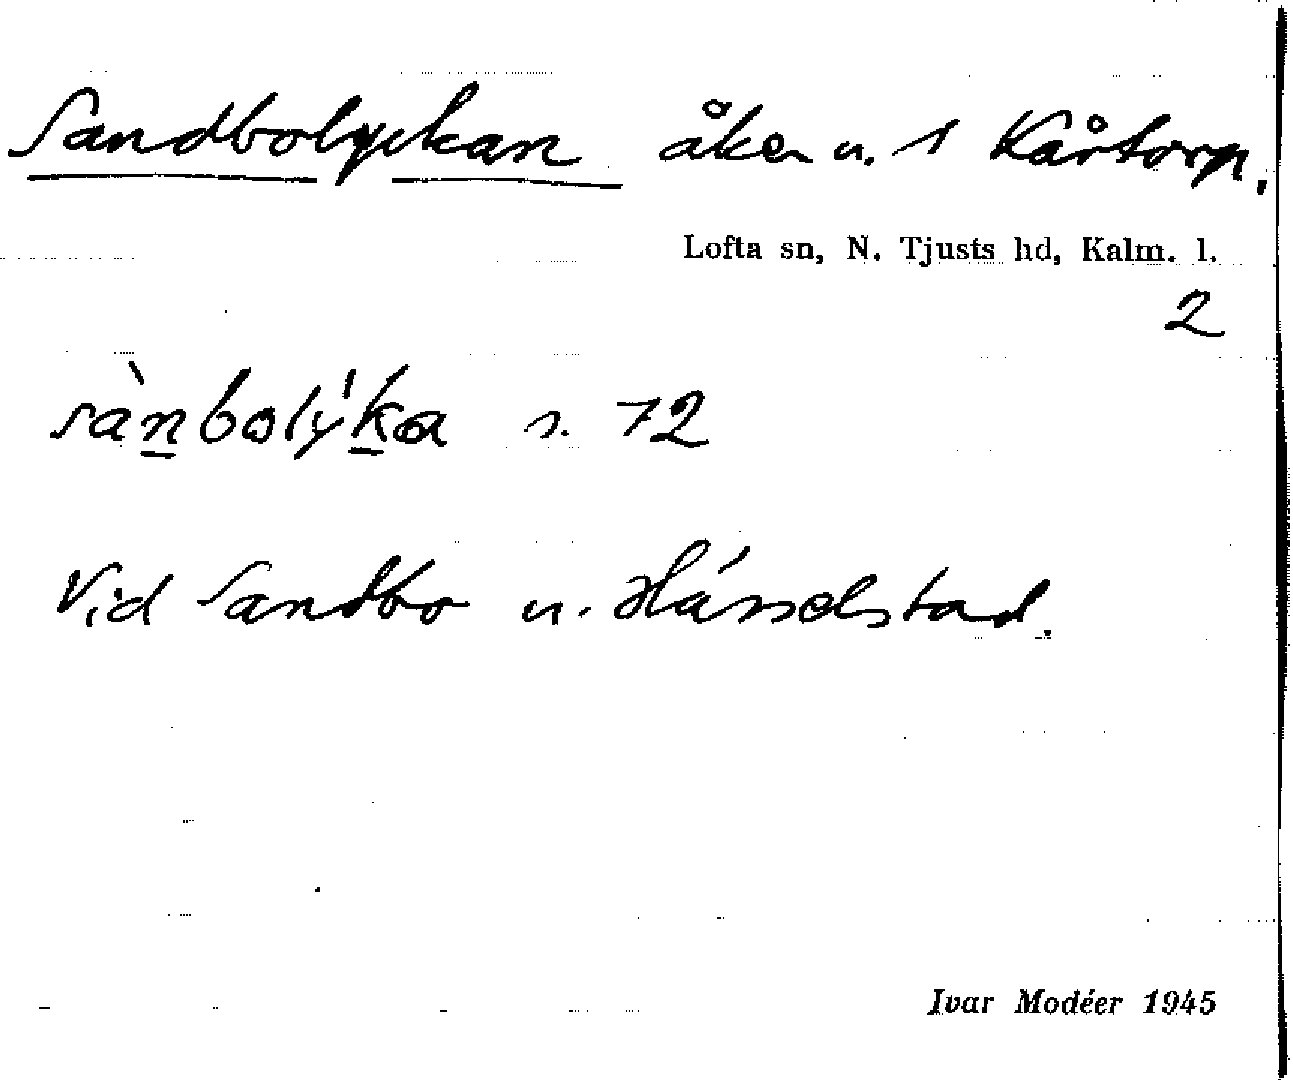 Sandbolyckan åker u. 1 Kårtorp.
Lofta sn, N. Tjusts hd, Kalm. l.
2
sànbolý'ka s. 72
Vid Sandbo u. Hásselstad.
Ivar Modéer 1945